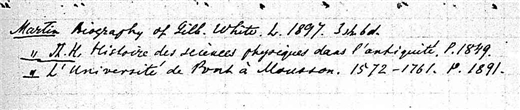 Martin Biography of Gilb. White. L. 1897. 3sh6d.
" Th. H. Histoire des sciences physiques dans l'antiquité. P. 1849.
" L'Université de Pont à Mousson. 1572-1761. P. 1891.